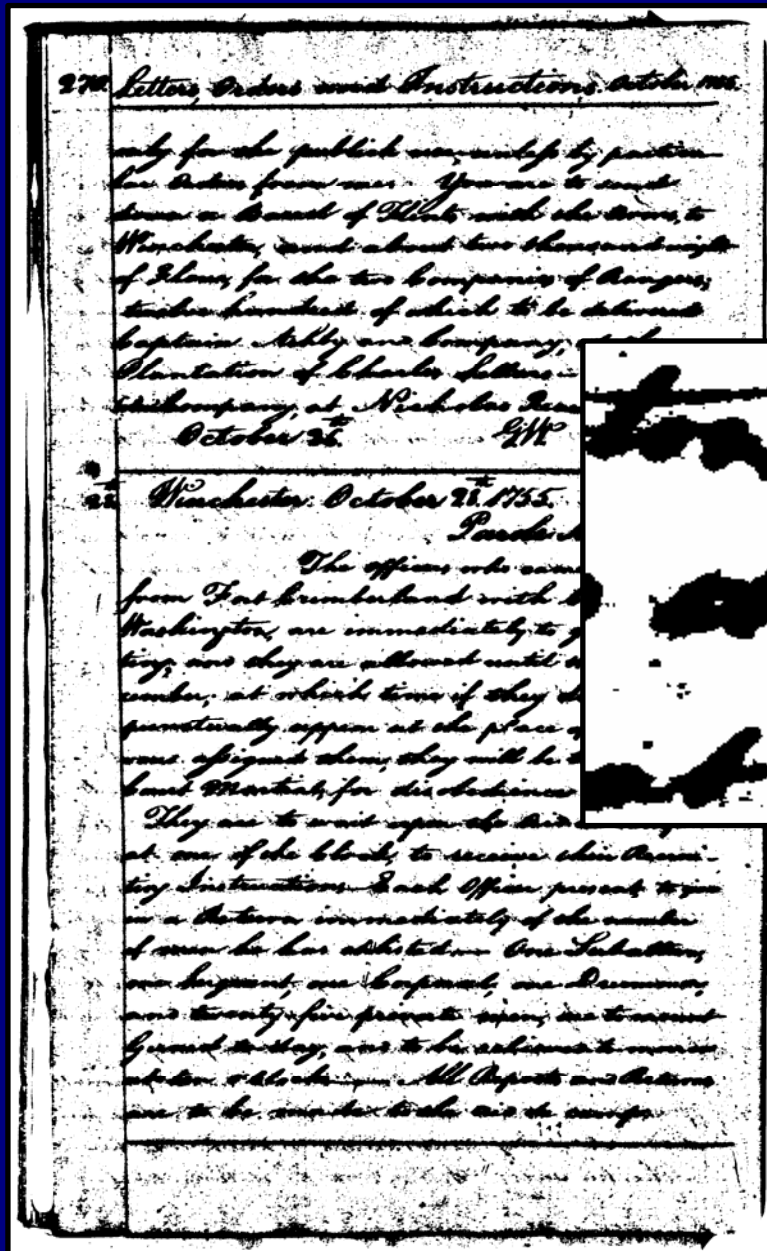 270. Letters, Orders and Instructions. October 1755.
only for the publick use, unless by particu-
lar Orders from me. You are to send
down a Barrel of Flints with the Arms, to
Winchester, and about two thousand weight
of Flour, for the two Companies of Rangers;
twelve hundred of which to be delivered
Captain Ashby and Company, at the
Plantation of Charles Sellers
Company, at Nicholas
October 26th. GW
28th. Winchester: October 28th. 1755.
Parole
The officers who came
from Fort Cumberland with
Washington, are immediately to
ting; and they are allowed until
cember; at which time if they
punctually appear at the place
vous assigned them, they will be
Court Martial, for disobedience
They are to wait upon the
at one of the Clock, to receive their Recrui-
ting Instructions. Each Officer present to give
in a Return immediately of the number
of men he has enlisted. One Subaltern,
one Serjeant, one Corporal, one Drummer,
and twenty-five private men, are to mount
Guard to-day, and to be relieved to-morrow
at ten o'clock. All Reports and Returns
are to be made to the aid de camp.